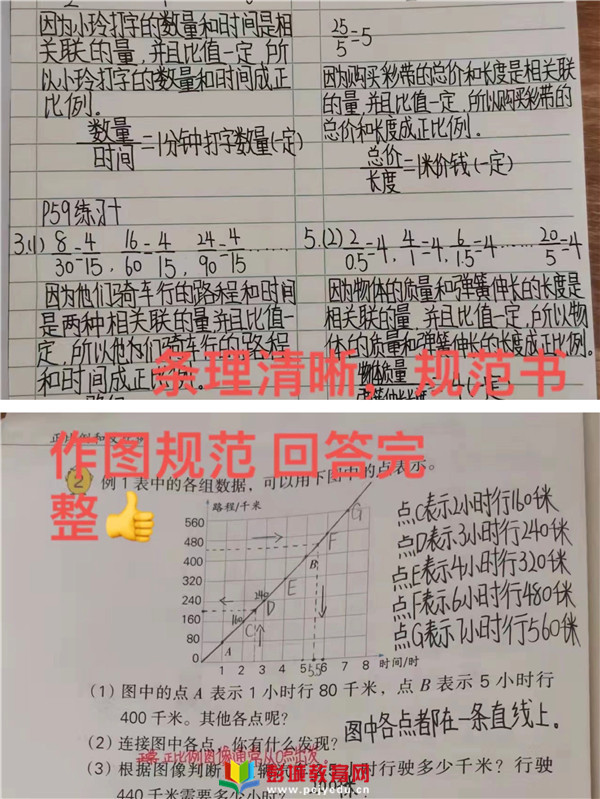 因为小玲打字的数量和时间是相
关联的量,并且比值一定,所
以小玲打字的数量和时间成正
比例。
数量/时间=1分钟打字数量(一定)
P59练习十
3.(1) 8/30=4/15, 16/60=4/15, 24/90=4/15 ……
因为他们骑车行的路程和时间
是两种相关联的量并且比值一
定,所以他们骑车行的路程
和时间成正比例。
25/5=5
因为购买彩带的总价和长度是相关联
的量,并且比值一定,所以购买彩带的
总价和长度成正比例。
总价/长度=1米价钱(一定)
5.(2) 2/0.5=4, 4/1=4, 6/1.5=4 …… 20/5=4
因为物体的质量和弹簧伸长的长度是
相关联的量,并且比值一定,所以物
体的质量和弹簧伸长的长度成正比例。
物体质量
条理清晰,规范书
作图规范 回答完
整👍
2 例1表中的各组数据,可以用下图中的点表示。
路程/千米
560
480
400
320
240
160
80
0
1 2 3 4 5 5.5 6 7 8 时间/时
A
B
C
D
E
F
G
160
240
点C表示2小时行160千米
点D表示3小时行240千米
点E表示4小时行320千米
点F表示6小时行480千米
点G表示7小时行560千米
(1)图中的点A表示1小时行80千米,点B表示5小时行
400千米。其他各点呢?
图中各点都在一条直线上。
(2)连接图中各点,你有什么发现?
正比例图像通常从0点出发
(3)根据图像判断
时行驶多少千米?行驶
440千米需要多少小时?
彭城教育网
www.pcjyedu.cn